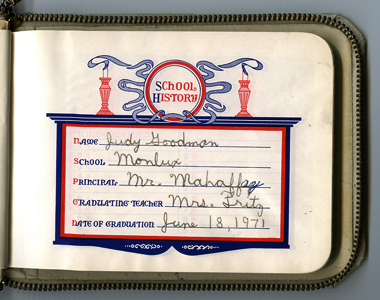 School
History
Name Judy Goodman
School Monlux
Principal Mr. Mahaffay
Graduating Teacher Mrs. Fritz
Date of Graduation June 18, 1971